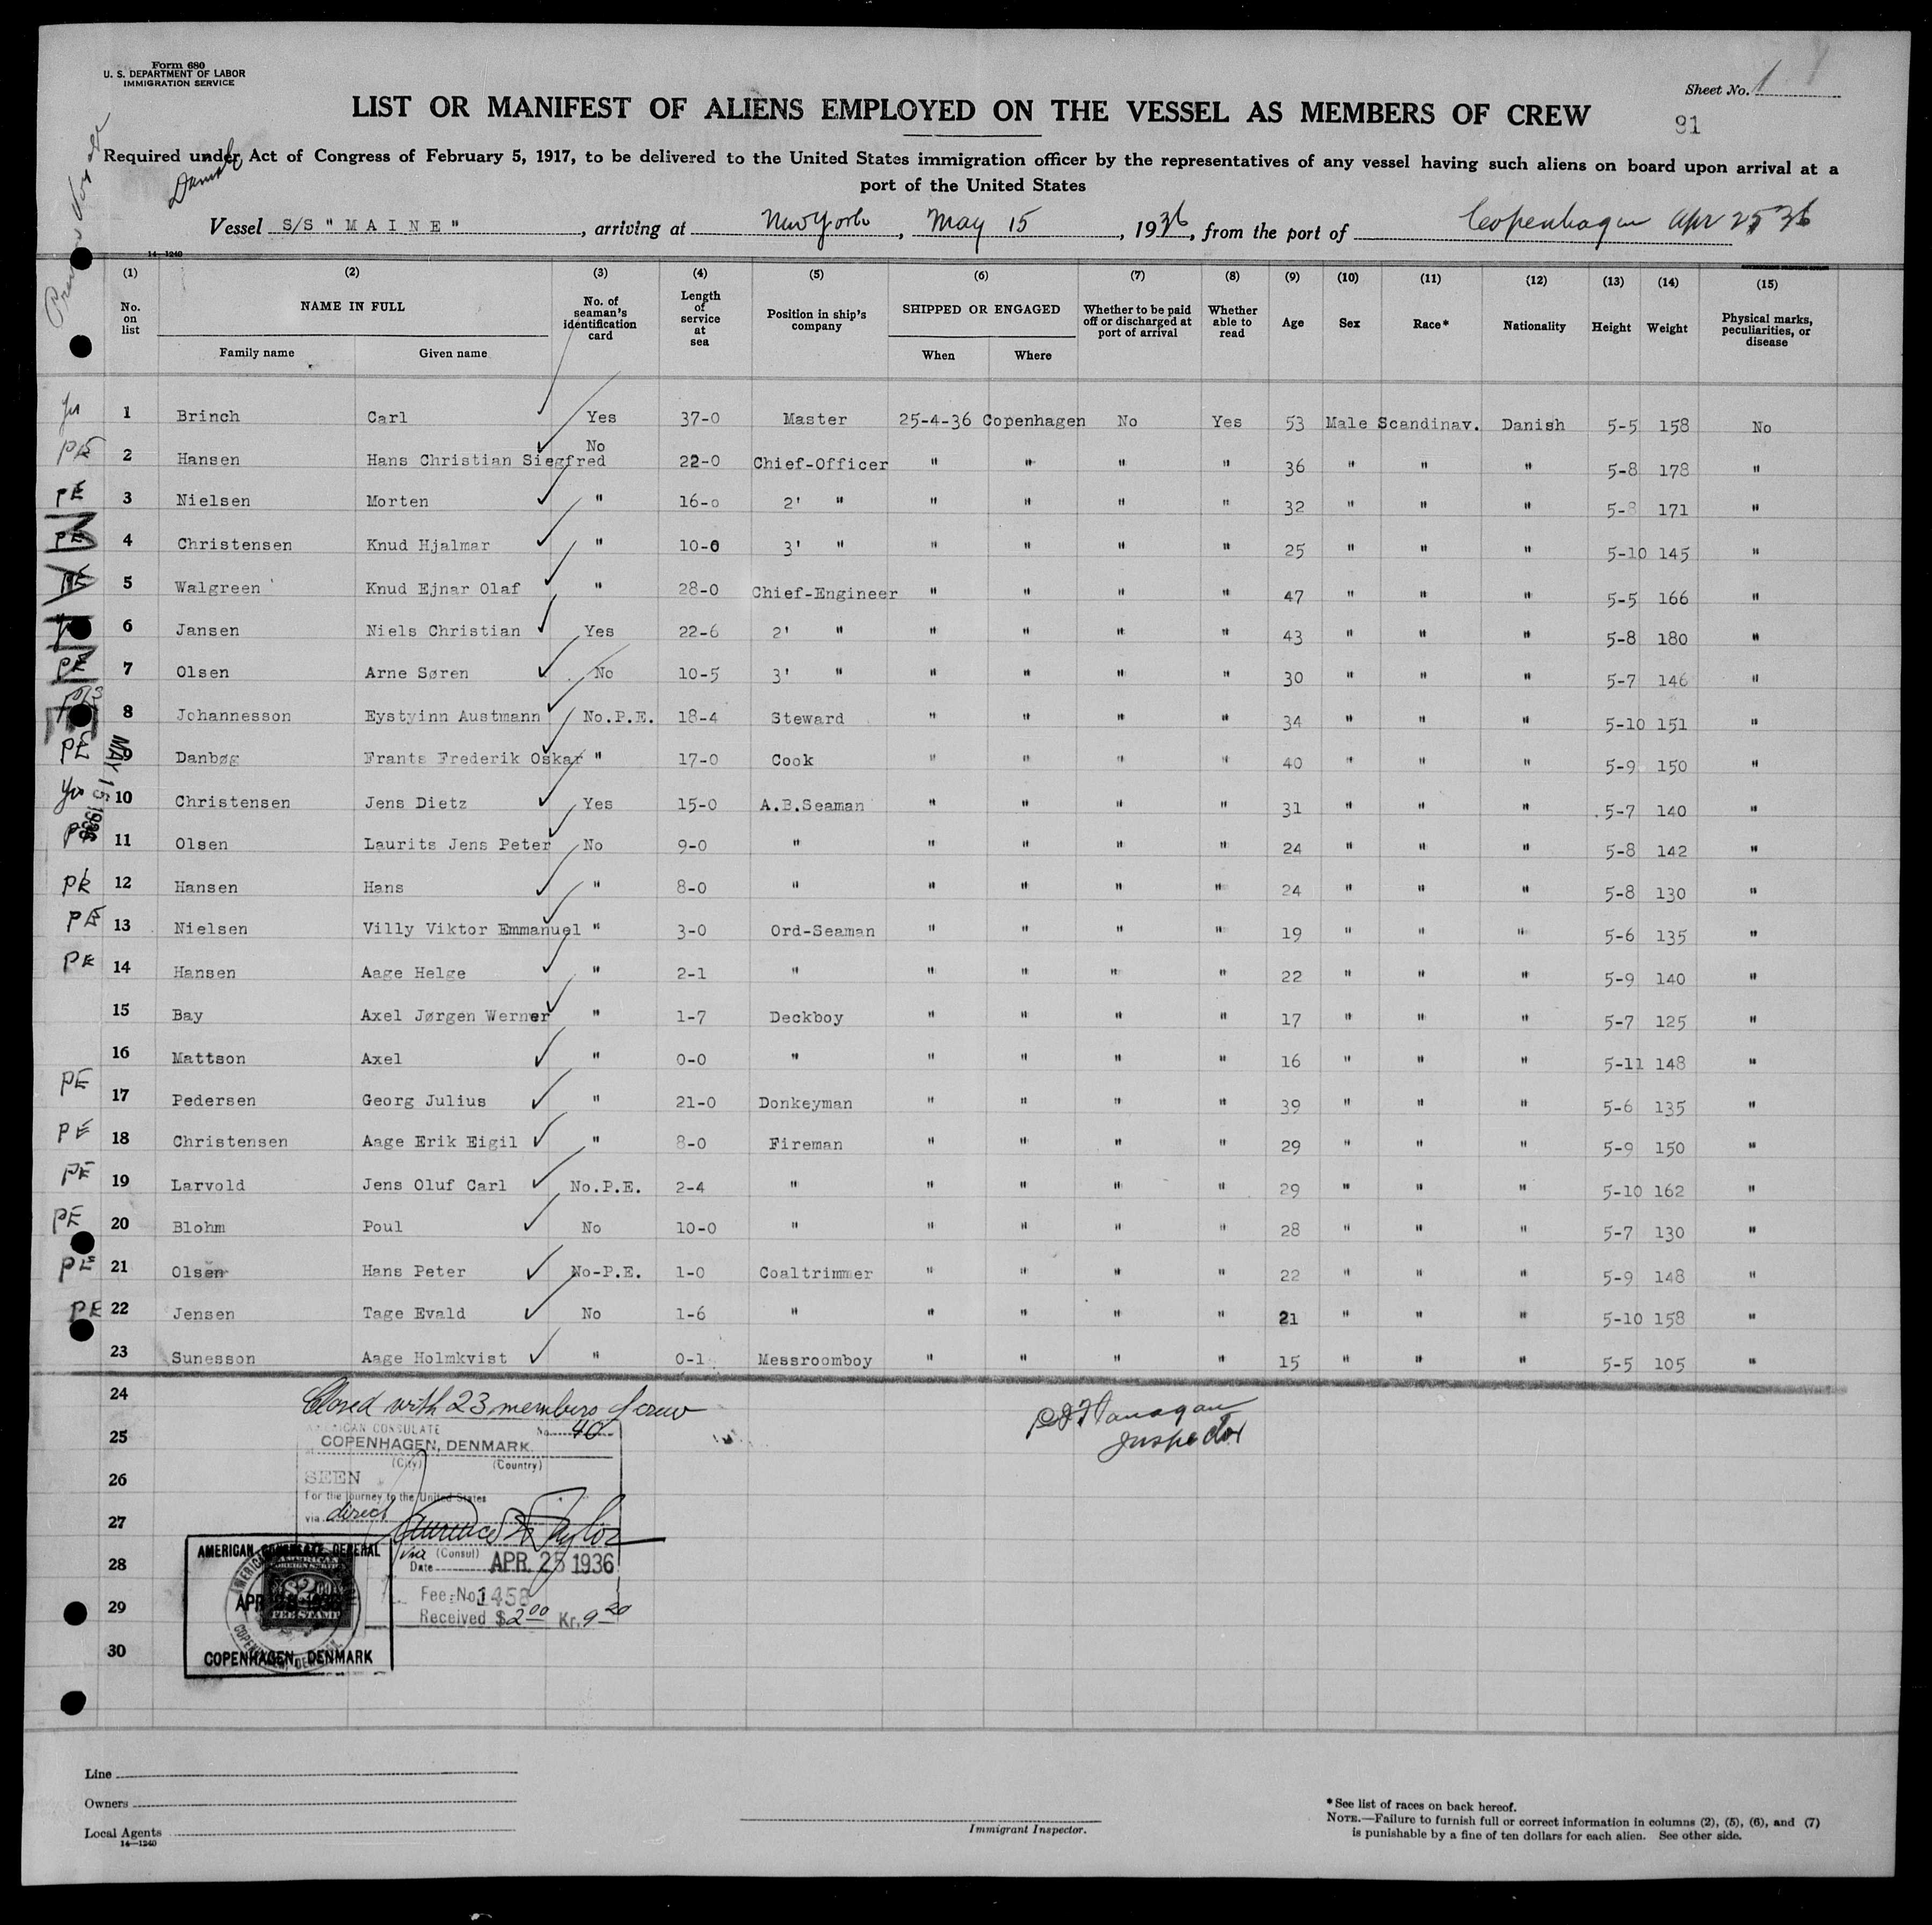 Form 680
U. S. DEPARTMENT OF LABOR
IMMIGRATION SERVICE
Sheet No. 1
LIST OR MANIFEST OF ALIENS EMPLOYED ON THE VESSEL AS MEMBERS OF CREW
91
Required under Act of Congress of February 5, 1917, to be delivered to the United States immigration officer by the representatives of any vessel having such aliens on board upon arrival at a
port of the United States
Vessel S/S "MAINE", arriving at New York, May 15, 1936, from the port of Copenhagen Apr 25 36
14—1240
(1) (2) (3) (4) (5) (6) (7) (8) (9) (10) (11) (12) (13) (14) (15)
No. on list NAME IN FULL Family name Given name No. of seaman's identification card Length of service at sea Position in ship's company SHIPPED OR ENGAGED When Where Whether to be paid off or discharged at port of arrival Whether able to read Age Sex Race* Nationality Height Weight Physical marks, peculiarities, or disease
Yes 1 Brinch Carl Yes 37-0 Master 25-4-36 Copenhagen No Yes 53 Male Scandinav. Danish 5-5 158 No
PE 2 Hansen Hans Christian Siegfred No 22-0 Chief-Officer " " " " 36 " " " 5-8 178 "
PE 3 Nielsen Morten " 16-0 2' " " " " " 32 " " " 5-8 171 "
PE 4 Christensen Knud Hjalmar " 10-0 3' " " " " " 25 " " " 5-10 145 "
PE 5 Walgreen Knud Ejnar Olaf " 28-0 Chief-Engineer " " " " 47 " " " 5-5 166 "
6 Jansen Niels Christian Yes 22-6 2' " " " " " 43 " " " 5-8 180 "
PE 7 Olsen Arne Søren No 10-5 3' " " " " " 30 " " " 5-7 146 "
8 Johannesson Eystyinn Austmann No.P.E. 18-4 Steward " " " " 34 " " " 5-10 151 "
PE 9 Danbøg Frants Frederik Oskar " 17-0 Cook " " " " 40 " " " 5-9 150 "
MAY 15 1936
Yes 10 Christensen Jens Dietz Yes 15-0 A.B.Seaman " " " " 31 " " " 5-7 140 "
PE 11 Olsen Laurits Jens Peter No 9-0 " " " " " 24 " " " 5-8 142 "
PE 12 Hansen Hans " 8-0 " " " " " 24 " " " 5-8 130 "
PE 13 Nielsen Villy Viktor Emmanuel " 3-0 Ord-Seaman " " " " 19 " " " 5-6 135 "
PE 14 Hansen Aage Helge " 2-1 " " " " " 22 " " " 5-9 140 "
15 Bay Axel Jørgen Werner " 1-7 Deckboy " " " " 17 " " " 5-7 125 "
16 Mattson Axel " 0-0 " " " " " 16 " " " 5-11 148 "
PE 17 Pedersen Georg Julius " 21-0 Donkeyman " " " " 39 " " " 5-6 135 "
PE 18 Christensen Aage Erik Eigil " 8-0 Fireman " " " " 29 " " " 5-9 150 "
PE 19 Larvold Jens Oluf Carl No.P.E. 2-4 " " " " " 29 " " " 5-10 162 "
PE 20 Blohm Poul No 10-0 " " " " " 28 " " " 5-7 130 "
PE 21 Olsen Hans Peter No-P.E. 1-0 Coaltrimmer " " " " 22 " " " 5-9 148 "
PE 22 Jensen Tage Evald No 1-6 " " " " " 21 " " " 5-10 158 "
23 Sunesson Aage Holmkvist " 0-1 Messroomboy " " " " 15 " " " 5-5 105 "
24 Closed with 23 members of crew
Flanagan
Inspector
AMERICAN CONSULATE No. 40
25 at COPENHAGEN, DENMARK.
(City) (Country)
26 SEEN
For the journey to the United States
27 via direct
Taylor
AMERICAN CONSULATE GENERAL
(Consul)
28 Date APR. 25 1936
AMERICAN FOREIGN SERVICE
$2.00
FEE STAMP
29 Fee No. 1458
Received $2.00 Kr. 9.20
30
COPENHAGEN, DENMARK
Line
Owners
Local Agents
14—1240
Immigrant Inspector.
*See list of races on back hereof.
NOTE.—Failure to furnish full or correct information in columns (2), (5), (6), and (7)
is punishable by a fine of ten dollars for each alien. See other side.